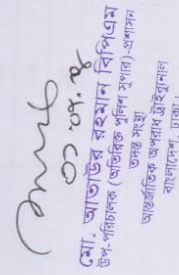 ৩১.০৮.২৪
মো. আতাউর রহমান বিপিএম
উপ-পরিচালক (অতিরিক্ত পুলিশ সুপার)-প্রশাসন
তদন্ত সংস্থা
আন্তর্জাতিক অপরাধ ট্রাইব্যুনাল
বাংলাদেশ, ঢাকা।